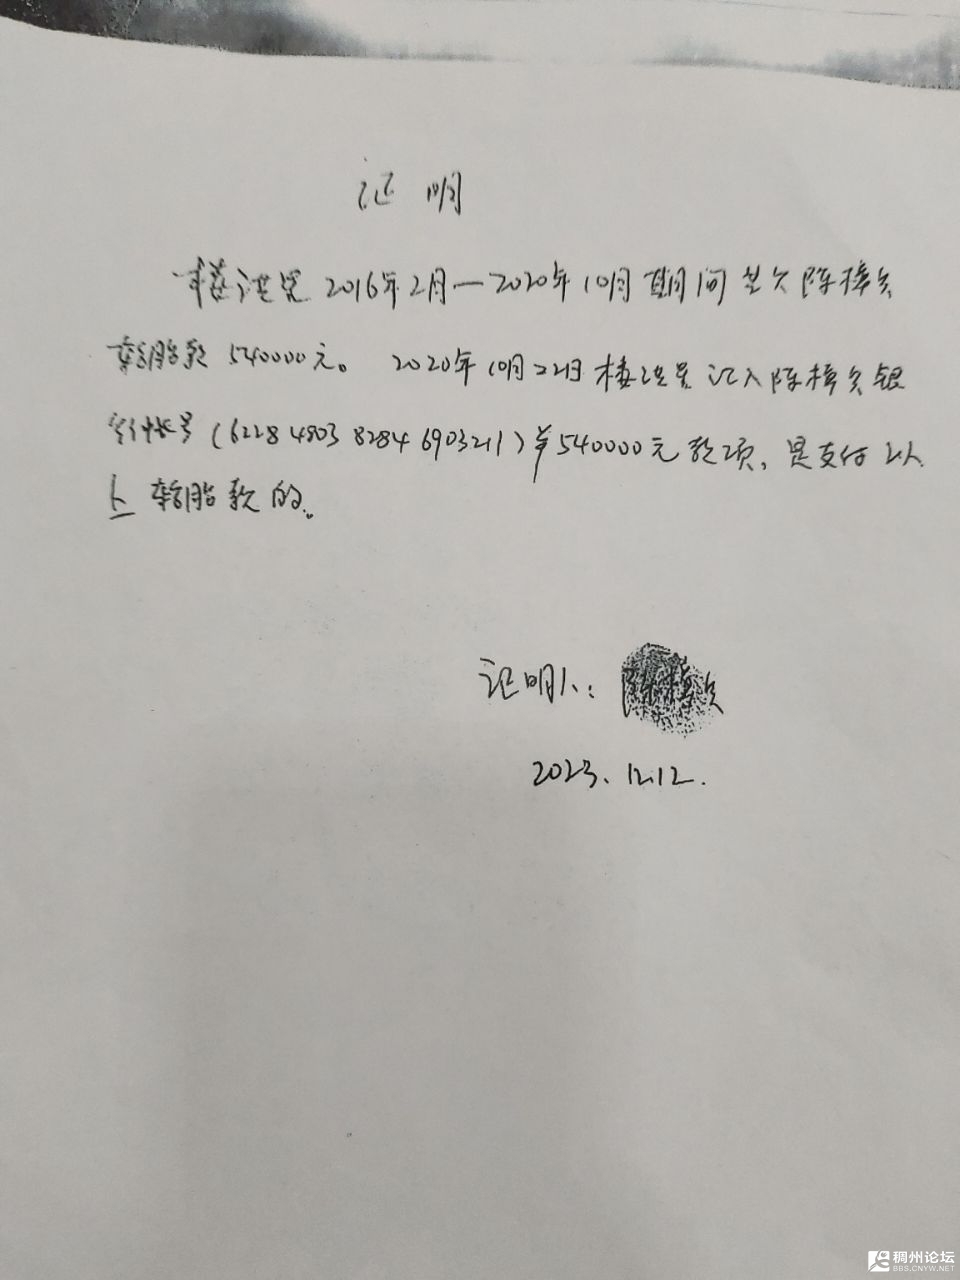 证明
楼洪 2016年2月—2020年10月期间共欠陈樟
轮胎款540000元。 2020年10月22日楼洪 汇入陈樟 银
行帐号(6228 4803 8284 6903211)￥540000元款项,是支付以
上轮胎款的。
证明人: 陈樟
2023.12.12.
稠州论坛
BBS.CNYW.NET